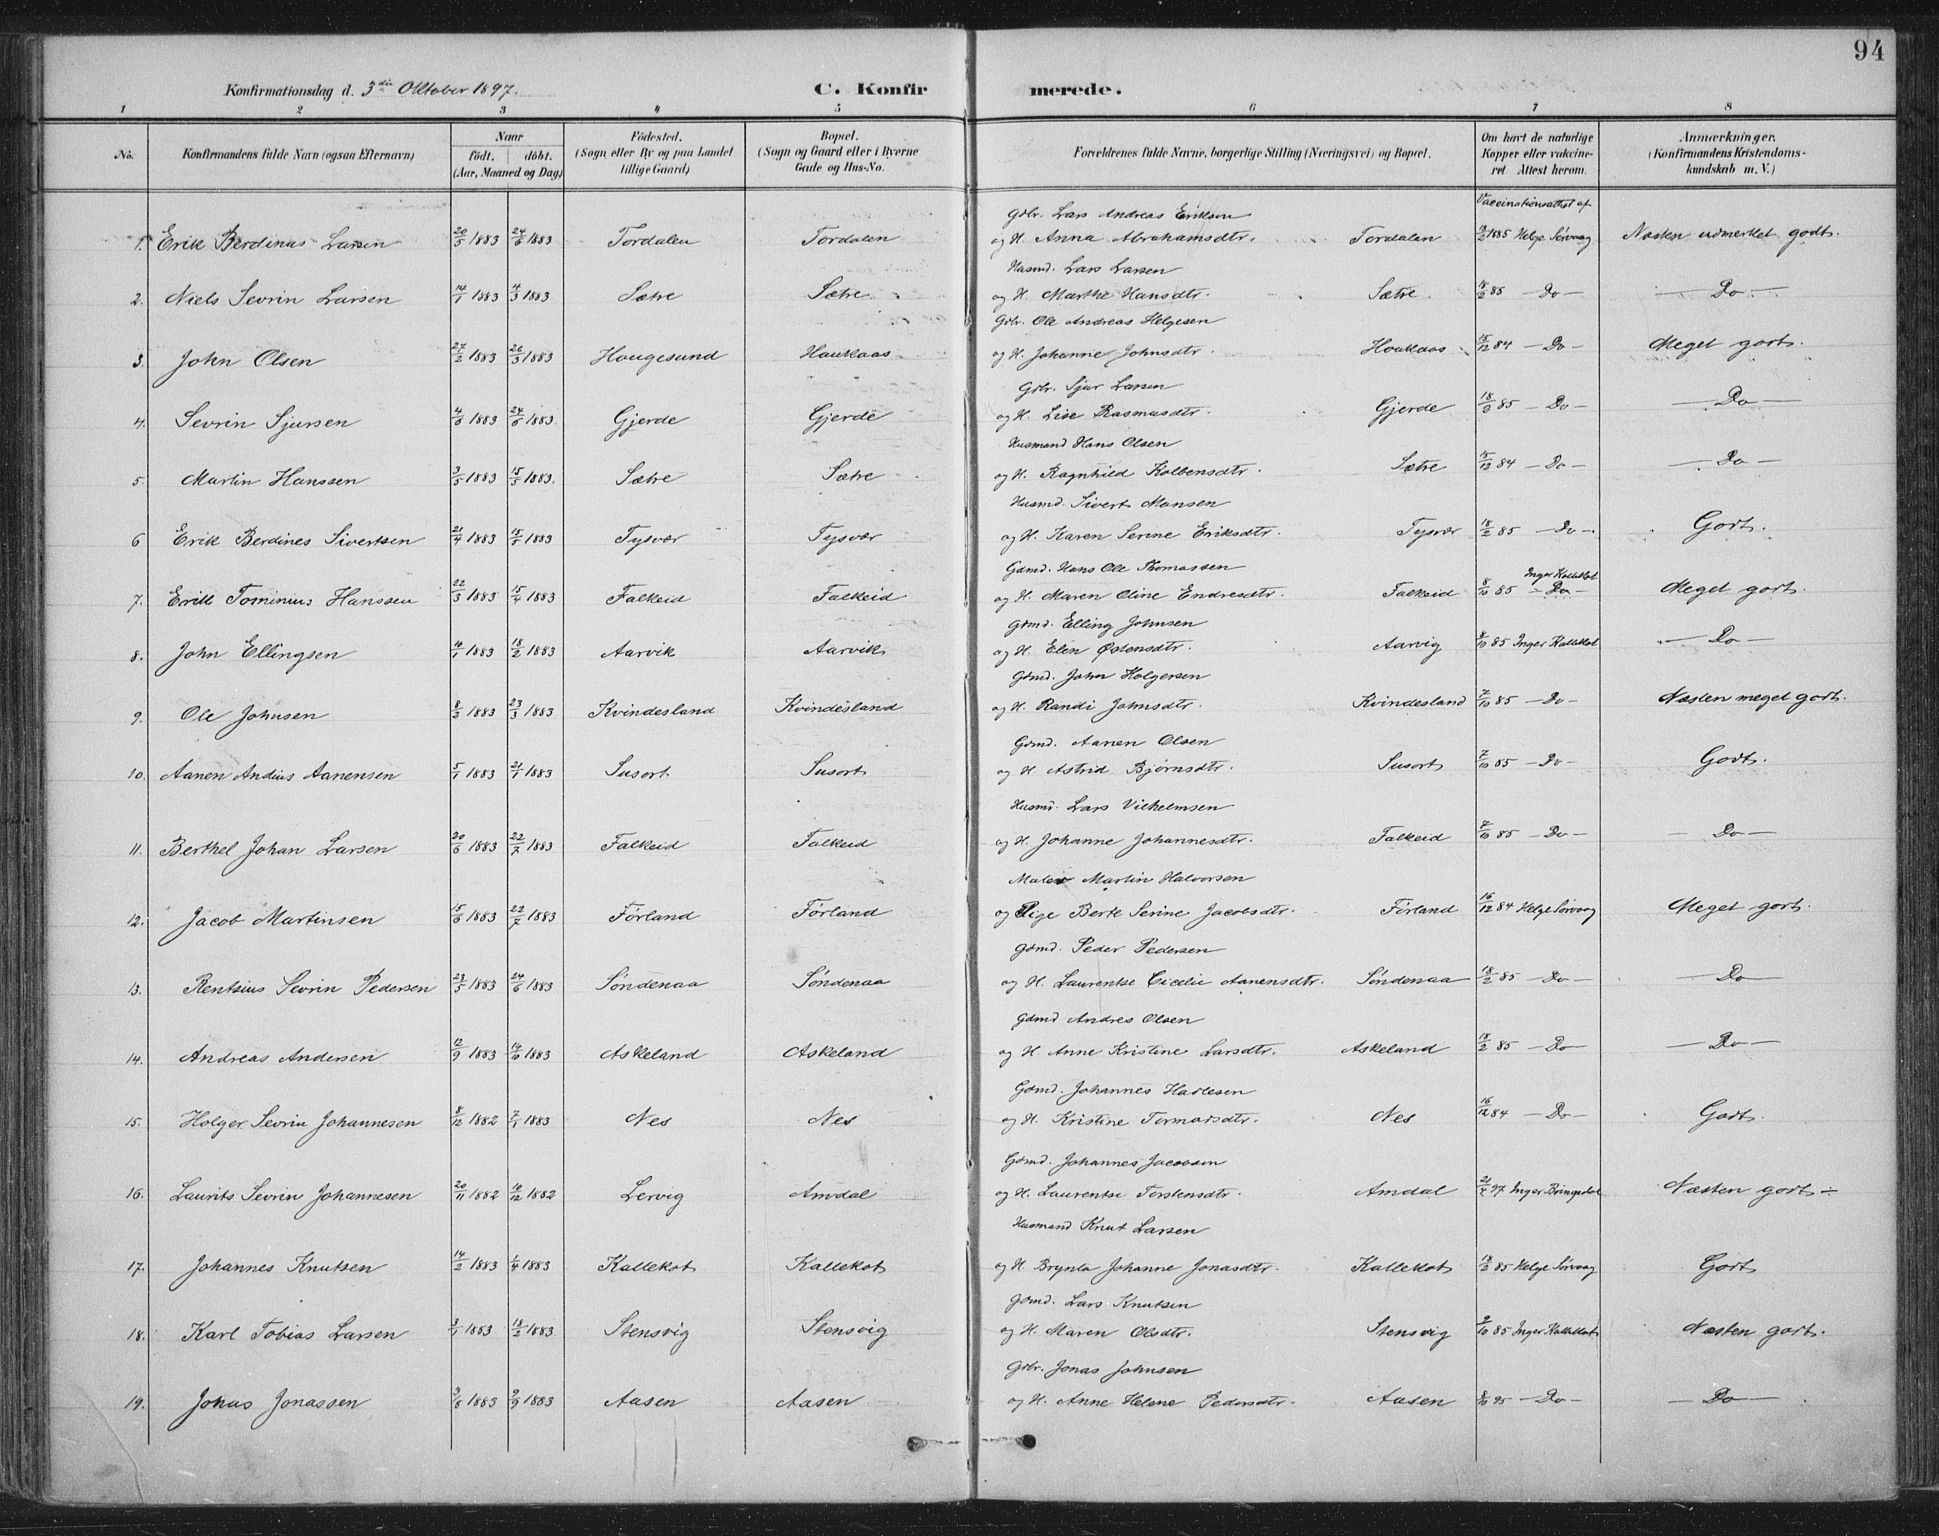 94
Konfirmationsdag d. 3die Oktober 1897. C. Konfirmerede.
1 2 3 4 5 6 7 8
No. Konfirmandens fulde Navn (ogsaa Efternavn) Naar født. døbt. (Aar, Maaned og Dag) Fødested. (Sogn eller By og paa Landet tillige Gaard) Bopæl. (Sogn og Gaard eller i Byerne Gade og Hus-No. Forældrenes fulde Navne, borgerlige Stilling (Næringsvei) og Bopæl. Om havt de naturlige Kopper eller vakcineret Attest herom. Anmærkninger. (Konfirmandens Kristendomskundskab m. V.)
Vaccinationsattest af
Gbr. Lars Andreas Eriksen
1. Erik Berdinus Larsen 20/5 1883 24/6 1883 Tordalen Tordalen og H. Anna Abrahamsdtr. Tordalen 18/2 1885 Helge Sørvaag Næsten udmerket godt.
Husmd. Lars Larsen
2. Niels Sevrin Larsen 14/1 1883 4/3 1883 Sætre Sætre og H. Marthe Hansdtr. Sætre 18/2 85 - Do - - Do -
Gbr. Ole Andreas Helgesen
3. John Olsen 27/2 1883 26/3 1883 Haugesund Haukaas og H. Johanne Johnsdtr. Haukaas 15/12 84 - Do - Meget godt.
Gbr. Sjur Larsen
4. Sevrin Sjursen 4/6 1883 24/6 1883 Gjerde Gjerde og H. Lise Rasmusdtr. Gjerde 18/2 85 - Do - - Do -
Husmand Hans Olsen
5. Martin Hanssen 3/5 1883 15/5 1883. Sætre Sætre og H. Ragnhild Kolbensdtr. Sætre 15/12 84 - Do - - Do -
Husmd. Sivert Monsen
6 Erik Berdines Sivertsen 21/4 1883 15/5 1883 Tysvær Tysvær og H. Karen Serine Eriksdtr. Tysvær 18/2 85 - Do - Godt.
Gdmd. Hans Ole Thomassen
7. Erik Tominius Hanssen 22/3 1883 15/4 1883 Falkeid Falkeid og H. Maren Oline Endresdtr. Falkeid 8/10 85 Inger Kallekot - Do - Meget godt.
Gdmd. Elling Johnsen
8. John Ellingsen 14/1 1883 18/2 1883 Aarvik Aarvik og H. Elen Østensdtr. Aarvig 8/10 85 Inger Kallekot - Do -
Gdmd. John Holgersen
9. Ole Johnsen 8/3 1883 23/3 1883 Kvindesland Kvindesland og H. Randi Johnsdtr. Kvindesland 7/10 85 - Do - Næsten meget godt.
Gdmd. Aanen Olsen
10. Aanen Andius Aanensen 5/1 1883 21/1 1883 Susort Susort og H Astrid Bjørnsdtr. Susort 7/10 85 - Do - Godt.
Husmd. Lars Vilhelmsen
11. Berthel Johan Larsen 20/6 1883 22/7 1883 Falkeid Falkeid og H. Johanne Johannesdtr. Falkeid 7/10 85 - Do - - Do -
Maler Martin Halvorsen
12. Jacob Martinsen 15/6 1883 22/7 1883 Førland Førland og Pige Berte Serine Jacobsdtr. Førland 16/12 84 Helge Sørvaag Meget godt.
Gdmd. Peder Pedersen
13. Rentsius Sevrin Pedersen 23/5 1883 24/6 1883 Søndenaa Søndenaa og H. Laurentse Cicelie Aanensdtr. Søndenaa 18/2 85 - Do - - Do
Gdmd Andres Olsen
14. Andreas Andersen 12/9 1883 14/10 1883 Askeland Askeland og H Anne Kristine Larsdtr. Askeland 18/2 85 - Do - - Do -
Gdmd. Johannes Harlesen
15. Holger Sevrin Johannesen 8/12 1882 7/1 1883 Nes Nes og H. Kristine Tormodsdtr. Nes 16/12 84 - Do - Godt.
Gdmd. Johannes Jacobsen
16. Laurits Sevrin Johannesen 20/11 1882 10/12 1882 Lervig Amdal og H. Laurentse Torstensdtr. Amdal 21/7 97 Inger Bringedal Næsten godt ÷
Husmand Knut Larsen
17. Johannes Knutsen 14/2 1883 1/4 1883 Kallekot Kallekot og H. Brynla Johanne Jonasdtr. Kallekot 18/2 85 Helge Sørvaag Godt
Gdmd. Lars Knutsen
18. Karl Tobias Larsen 3/1 1883 18/2 1883 Stensvig Stensvig og H. Maren Olsdtr. Stensvig 9/10 85 Inger Kallekot Næsten godt.
Gbr. Jonas Johnsen
19. Jonas Jonassen 3/8 1883 9/9 1883 Aasen Aasen og H. Anne Helene Pedersdtr. Aasen 8/10 95 - Do - - Do -